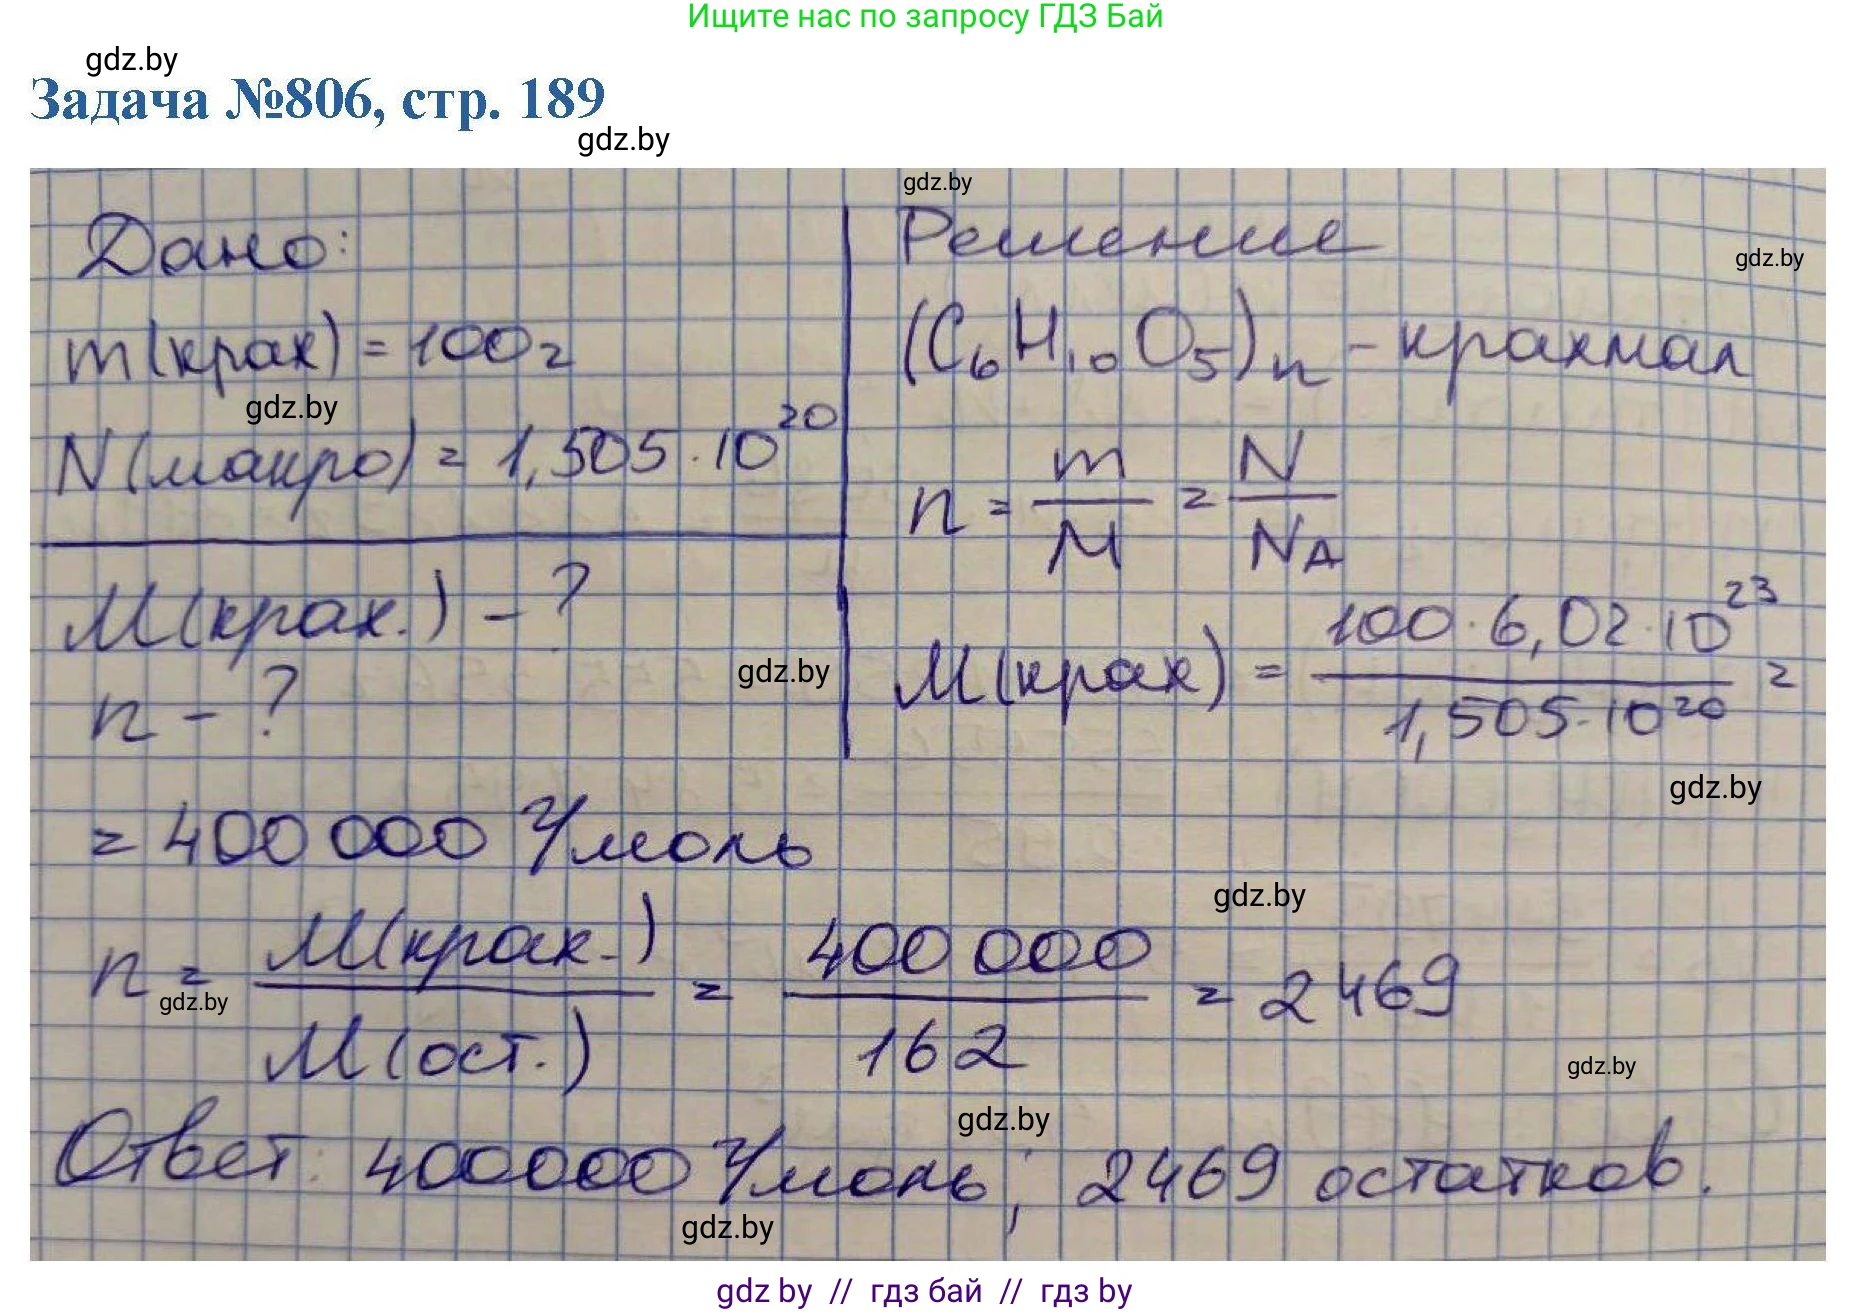 Ищите нас по запросу ГДЗ Бай
gdz.by
Задача №806, стр. 189
gdz.by
gdz.by
Дано:
m(крах) = 100 г
gdz.by
N(макро) = 1,505·10²⁰
M(крах.) - ?
n - ?
gdz.by
Решение
gdz.by
(C₆H₁₀O₅)ₙ - крахмал
n = m/M = N/N_A
M(крах) = 100·6,02·10²³ / 1,505·10²⁰ =
gdz.by
= 400 000 г/моль
gdz.by
n = M(крах.) / M(ост.) = 400 000 / 162 = 2469
gdz.by
gdz.by
gdz.by
Ответ: 400000 г/моль; 2469 остатков.
gdz.by
gdz by // гдз бай // гдз by